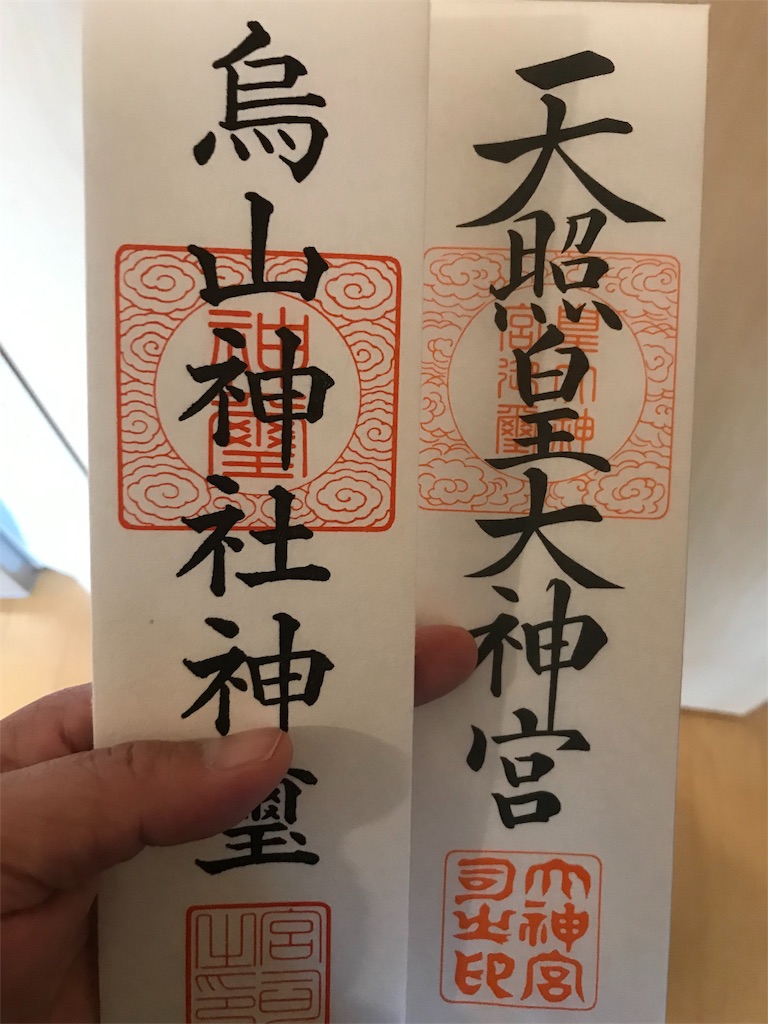 天照皇大神宮
皇大神
宮御璽
大神宮
司之印
烏山神社神璽
神璽
宮司
之印